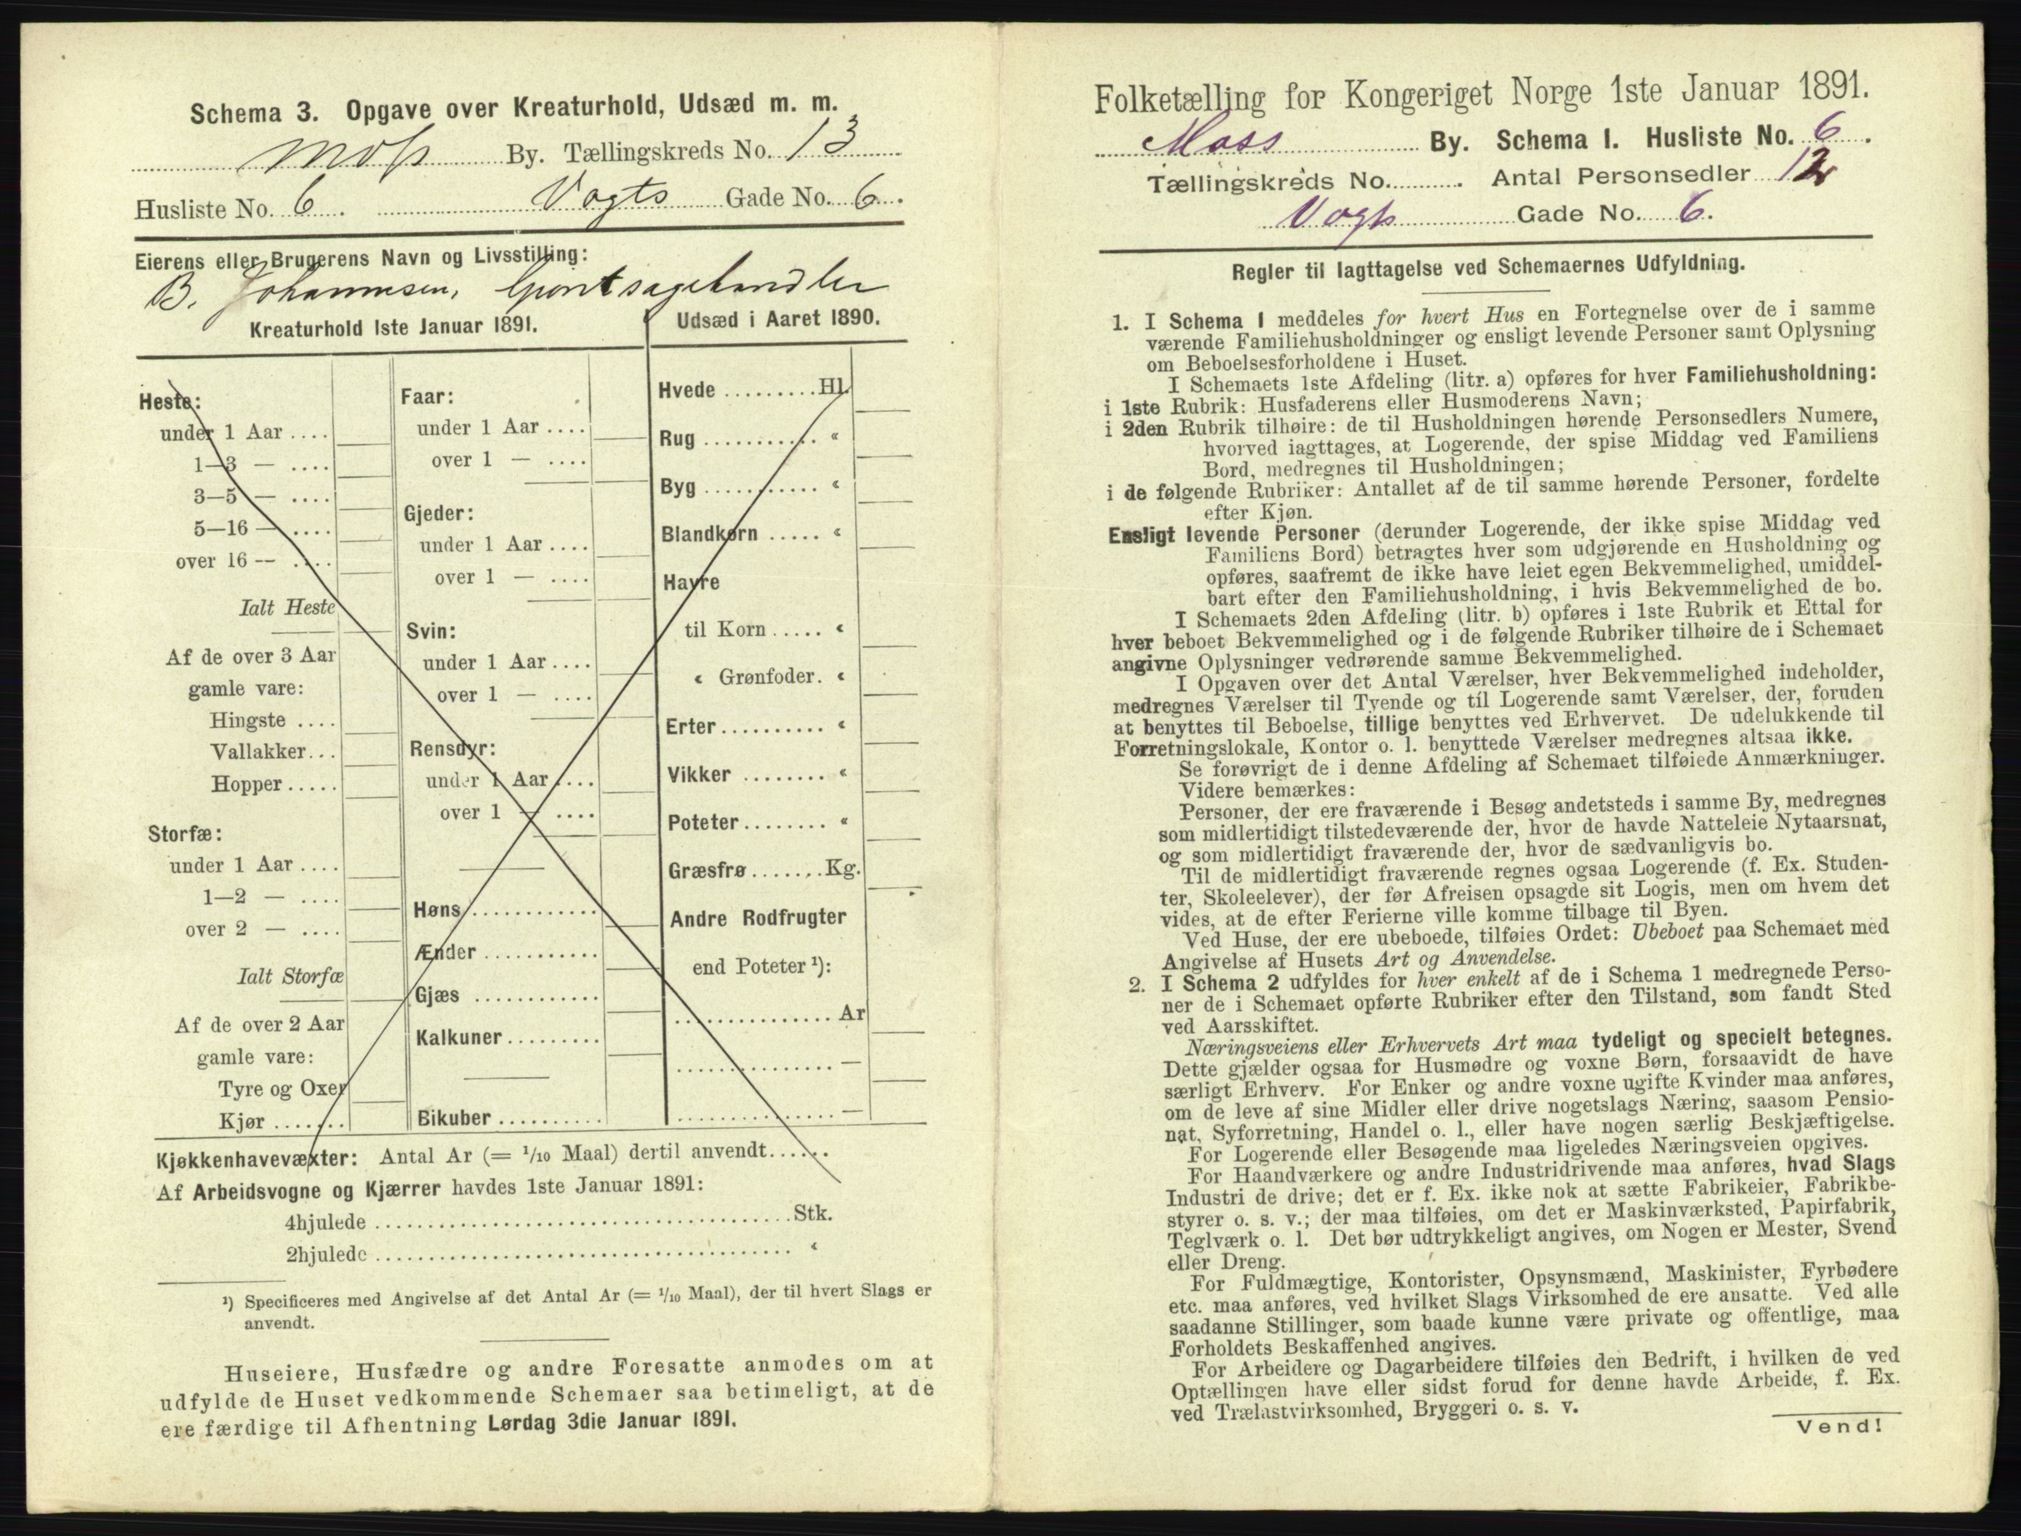 Schema 3. Opgave over Kreaturhold, Udsæd m. m.
Moss By. Tællingskreds No. 13
Husliste No. 6. Vogts Gade No. 6.
Eierens eller Brugerens Navn og Livsstilling:
B. Johannesen,
Kreaturhold 1ste Januar 1891.
Heste:
under 1 Aar ....
1—3 — ....
3—5 — ....
5—16 — ....
over 16 — ....
Ialt Heste
Af de over 3 Aar
gamle vare:
Hingste ....
Vallakker...
Hopper.....
Storfæ:
under 1 Aar ....
1—2 — ....
over 2 — ....
Ialt Storfæ
Af de over 2 Aar
gamle vare:
Tyre og Oxer
Kjør .......
Faar:
under 1 Aar ....
over 1 — ....
Gjeder:
under 1 Aar ....
over 1 — ....
Svin:
under 1 Aar ....
over 1 — ....
Rensdyr:
under 1 Aar ....
over 1 — ....
Høns............
Ænder ...........
Gjæs ............
Kalkuner.........
Bikuber ..........
Udsæd i Aaret 1890.
Hvede .........Hl.
Rug ........... «
Byg ........... «
Blandkorn ..... «
Havre
til Korn ..... «
« Grønfoder. «
Erter.......... «
Vikker ........ «
Poteter........ «
Græsfrø .......Kg.
Andre Rodfrugter
end Poteter ¹):
............... Ar
............... —
............... —
Kjøkkenhavevæxter: Antal Ar (= 1/10 Maal) dertil anvendt......
Af Arbeidsvogne og Kjærrer havdes 1ste Januar 1891:
4hjulede ........................................Stk.
2hjulede ........................................ «
¹) Specificeres med Angivelse af det Antal Ar (= 1/10 Maal), der til hvert Slags er
anvendt.
Huseiere, Husfædre og andre Foresatte anmodes om at
udfylde de Huset vedkommende Schemaer saa betimeligt, at de
ere færdige til Afhentning Lørdag 3die Januar 1891.
Folketælling for Kongeriget Norge 1ste Januar 1891.
Moss By. Schema 1. Husliste No. 6.
Tællingskreds No. ......... . Antal Personsedler 12
Vogts Gade No. 6.
Regler til Iagttagelse ved Schemaernes Udfyldning.
1. I Schema 1 meddeles for hvert Hus en Fortegnelse over de i samme
værende Familiehusholdninger og ensligt levende Personer samt Oplysning
om Beboelsesforholdene i Huset.
I Schemaets 1ste Afdeling (litr. a) opføres for hver Familiehusholdning:
i 1ste Rubrik: Husfaderens eller Husmoderens Navn;
i 2den Rubrik tilhøire: de til Husholdningen hørende Personsedlers Numere,
hvorved iagttages, at Logerende, der spise Middag ved Familiens
Bord, medregnes til Husholdningen;
i de følgende Rubriker: Antallet af de til samme hørende Personer, fordelte
efter Kjøn.
Ensligt levende Personer (derunder Logerende, der ikke spise Middag ved
Familiens Bord) betragtes hver som udgjørende en Husholdning og
opføres, saafremt de ikke have leiet egen Bekvemmelighed, umiddel-
bart efter den Familiehusholdning, i hvis Bekvemmelighed de bo.
I Schemaets 2den Afdeling (litr. b) opføres i 1ste Rubrik et Ettal for
hver beboet Bekvemmelighed og i de følgende Rubriker tilhøire de i Schemaet
angivne Oplysninger vedrørende samme Bekvemmelighed.
I Opgaven over det Antal Værelser, hver Bekvemmelighed indeholder,
medregnes Værelser til Tyende og til Logerende samt Værelser, der, foruden
at benyttes til Beboelse, tillige benyttes ved Erhvervet. De udelukkende til
Forretningslokale, Kontor o. l. benyttede Værelser medregnes altsaa ikke.
Se forøvrigt de i denne Afdeling af Schemaet tilføiede Anmærkninger.
Videre bemærkes:
Personer, der ere fraværende i Besøg andetsteds i samme By, medregnes
som midlertidigt tilstedeværende der, hvor de havde Natteleie Nytaarsnat,
og som midlertidigt fraværende der, hvor de sædvanligvis bo.
Til de midlertidigt fraværende regnes ogsaa Logerende (f. Ex. Studen-
ter, Skoleelever), der før Afreisen opsagde sit Logis, men om hvem det
vides, at de efter Ferierne ville komme tilbage til Byen.
Ved Huse, der ere ubeboede, tilføies Ordet: Ubeboet paa Schemaet med
Angivelse af Husets Art og Anvendelse.
2. I Schema 2 udfyldes for hver enkelt af de i Schema 1 medregnede Perso-
ner de i Schemaet opførte Rubriker efter den Tilstand, som fandt Sted
ved Aarsskiftet.
Næringsveiens eller Erhvervets Art maa tydeligt og specielt betegnes.
Dette gjælder ogsaa for Husmødre og voxne Børn, forsaavidt de have
særligt Erhverv. For Enker og andre voxne ugifte Kvinder maa anføres,
om de leve af sine Midler eller drive nogetslags Næring, saasom Pensio-
nat, Syforretning, Handel o. l., eller have nogen særlig Beskjæftigelse.
For Logerende eller Besøgende maa ligeledes Næringsveien opgives.
For Haandværkere og andre Industridrivende maa anføres, hvad Slags
Industri de drive; det er f. Ex. ikke nok at sætte Fabrikeier, Fabrikbe-
styrer o. s. v.; der maa tilføies, om det er Maskinværksted, Papirfabrik,
Teglværk o. l. Det bør udtrykkeligt angives, om Nogen er Mester, Svend
eller Dreng.
For Fuldmægtige, Kontorister, Opsynsmænd, Maskinister, Fyrbødere
etc. maa anføres, ved hvilket Slags Virksomhed de ere ansatte. Ved alle
saadanne Stillinger, som baade kunne være private og offentlige, maa
Forholdets Beskaffenhed angives.
For Arbeidere og Dagarbeidere tilføies den Bedrift, i hvilken de ved
Optællingen have eller sidst forud for denne havde Arbeide, f. Ex.
ved Trælastvirksomhed, Bryggeri o. s. v.
Vend!